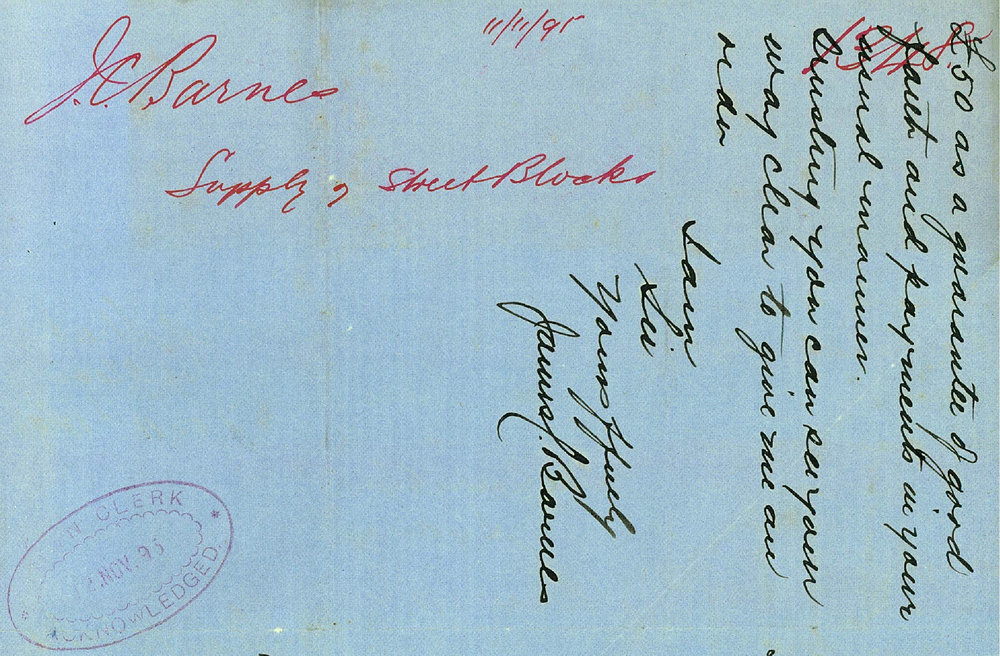 11/11/95
J. C. Barnes
Supply of Street Blocks
£50 as a guarantee of good
faith and payments in your
usual manner.
Trusting you can see your
way clear to give me an
order
I am
Sir
Yours ffully
James C. Barnes
CLERK
NOV. 95
ACKNOWLEDGED.